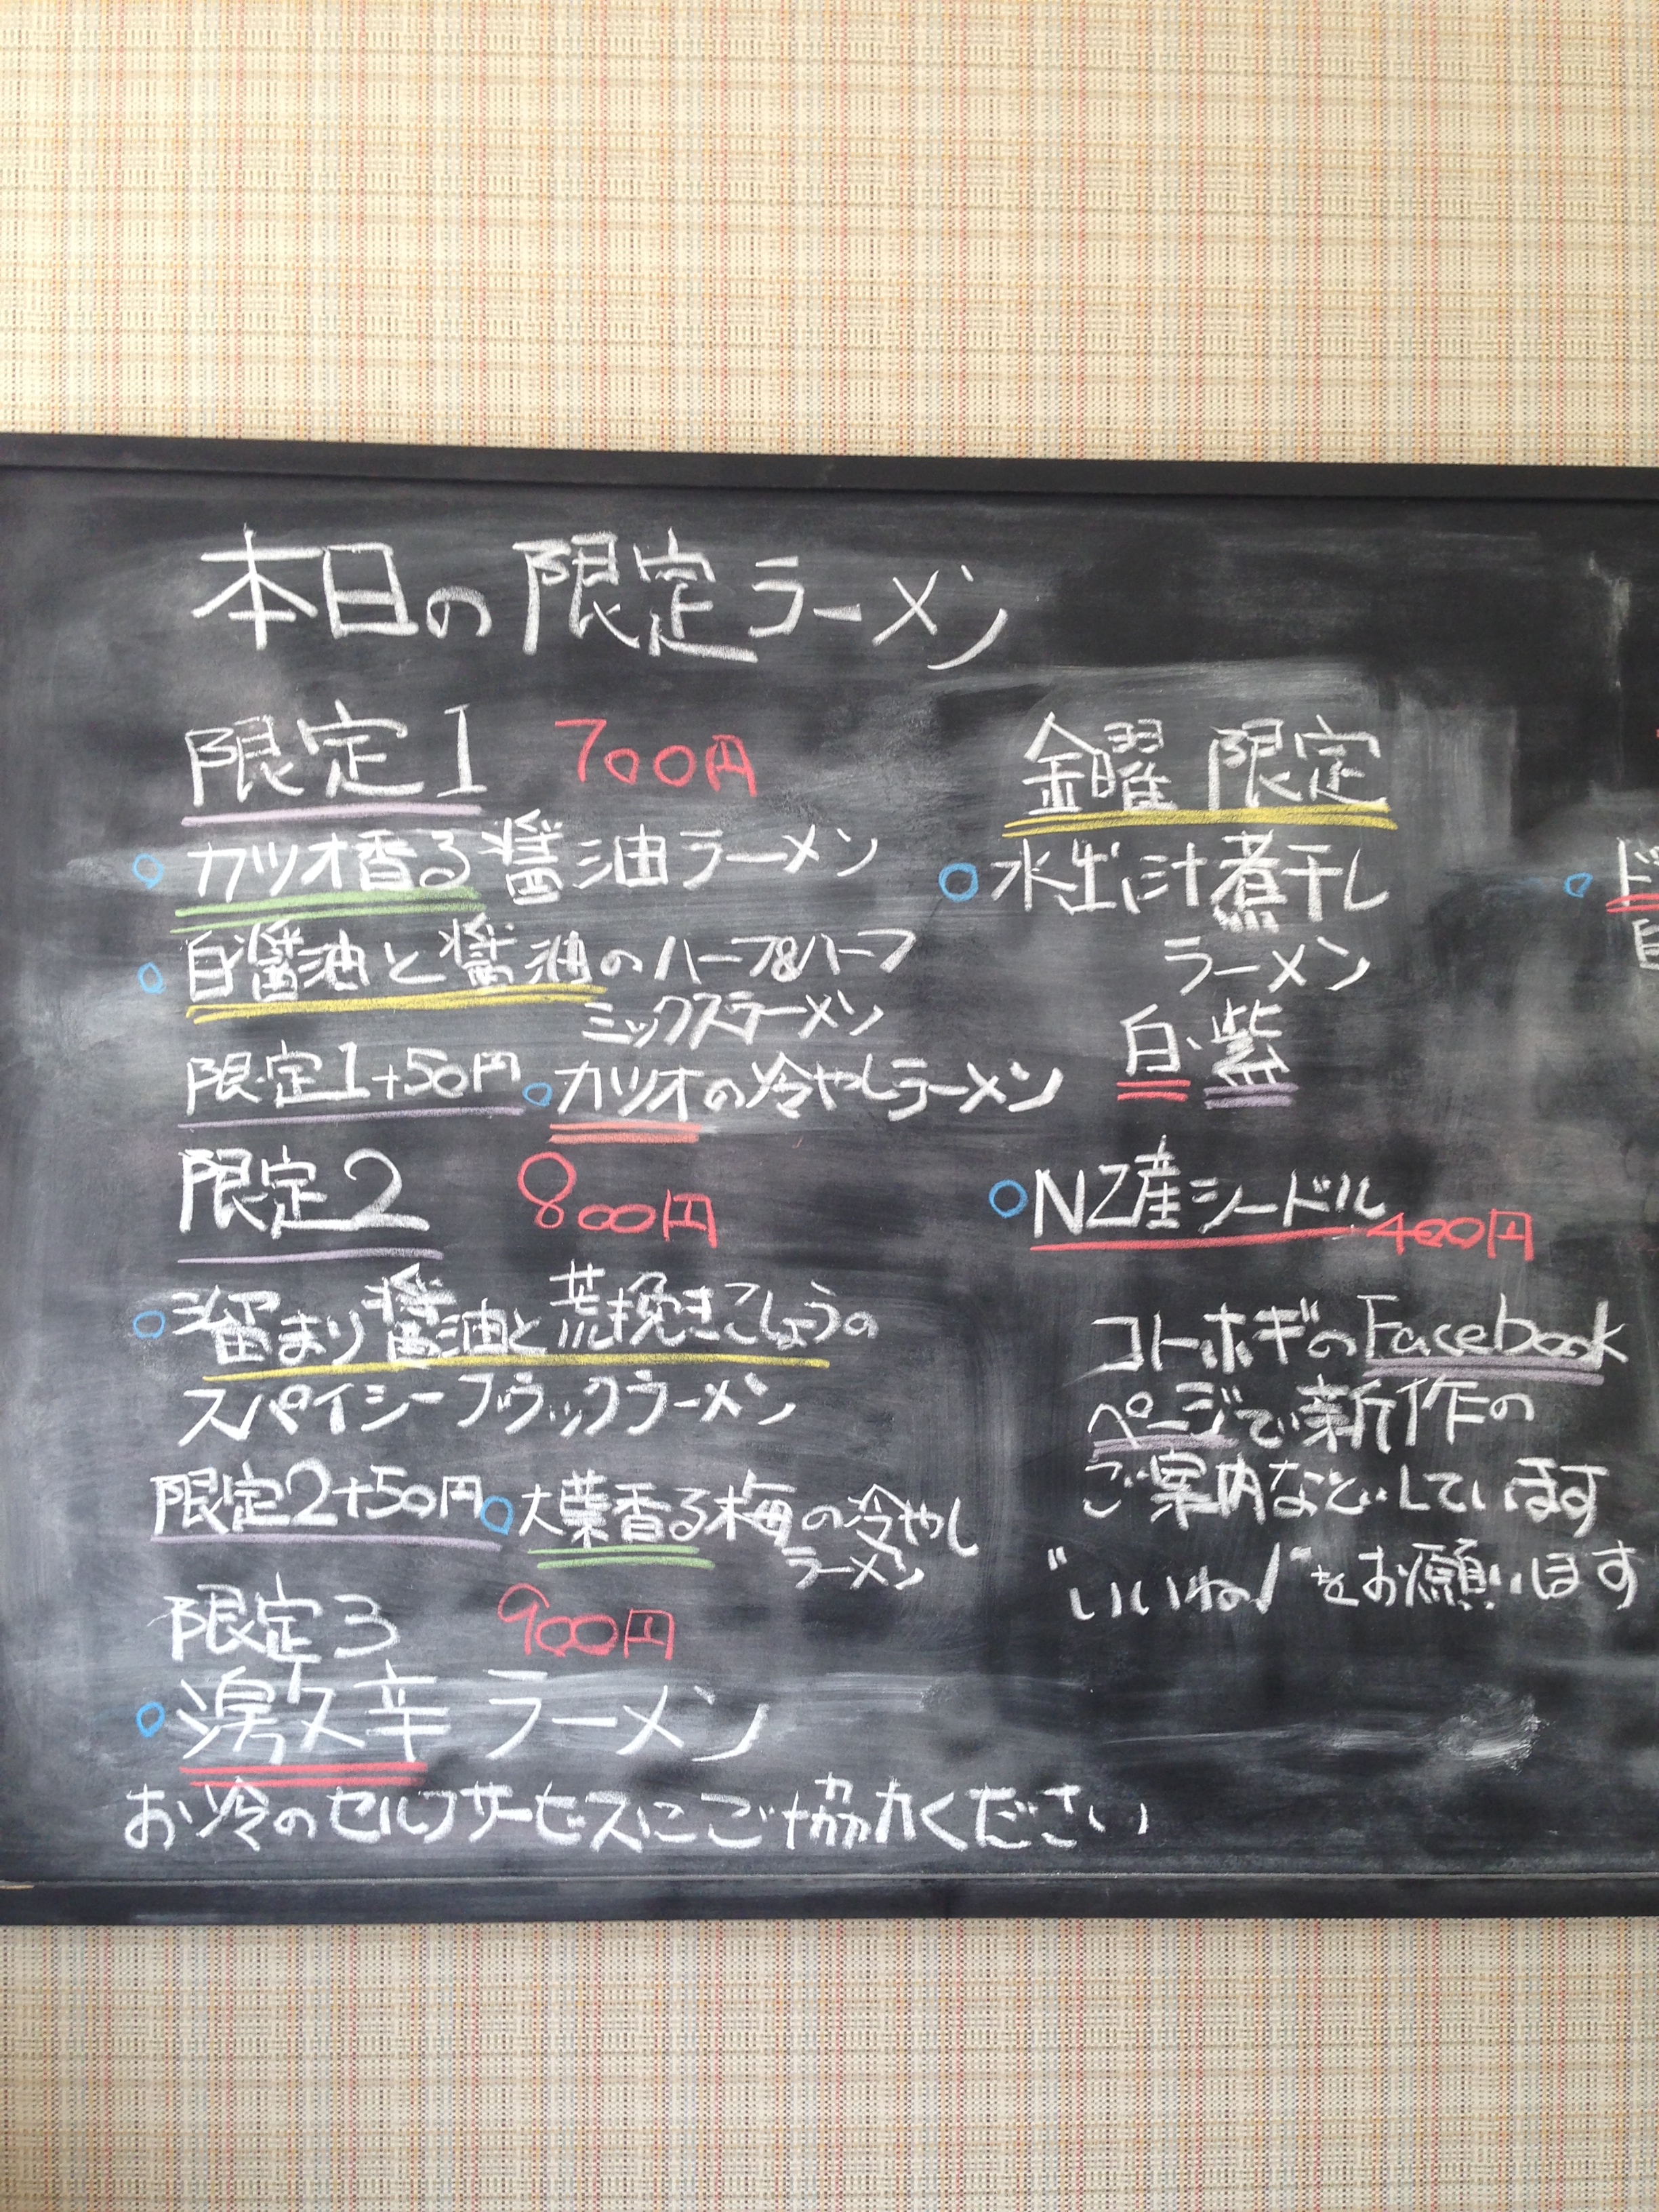 本日の限定ラーメン
限定1 700円
カツオ香る醤油ラーメン
白醤油と醤油のハーフ&ハーフ
ミックスラーメン
限定1+50円 カツオの冷やしラーメン
限定2 800円
溜まり醤油と荒挽きこしょうの
スパイシーブラックラーメン
限定2+50円 大葉香る梅の冷やし
ラーメン
限定3 900円
辛ラーメン
お冷のセルフサービスにご協力ください
金曜 限定
水出汁煮干し
ラーメン
白・紫
NZ産シードル 400円
コトホギのFacebook
ページで新作の
ご案内などしています
"いいね!"をお願いします